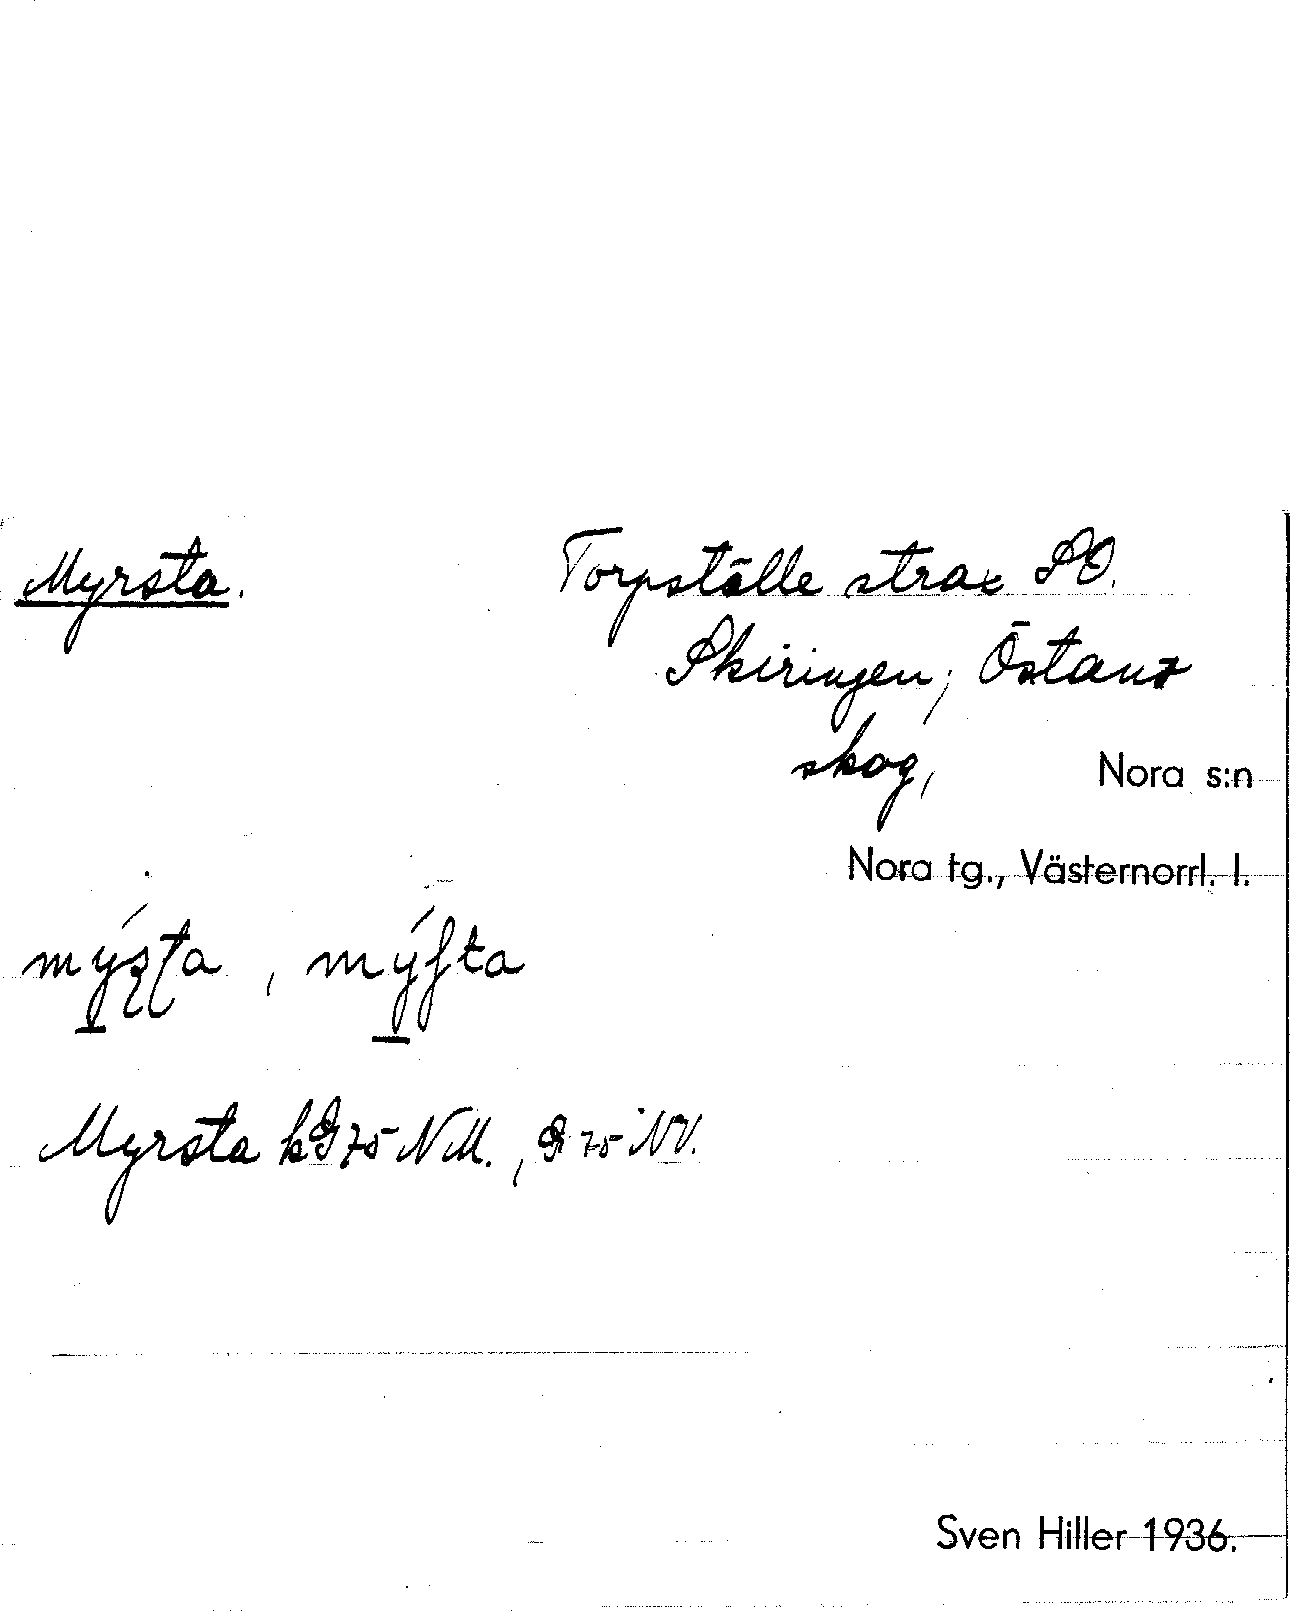 Myrsta.
Torpställe strax SO.
Skiringen, Östans
skog, Nora s:n
Nora tg., Västernorrl. l.
Myrsta kG75 NM., G 75 NV.
Sven Hiller 1936.